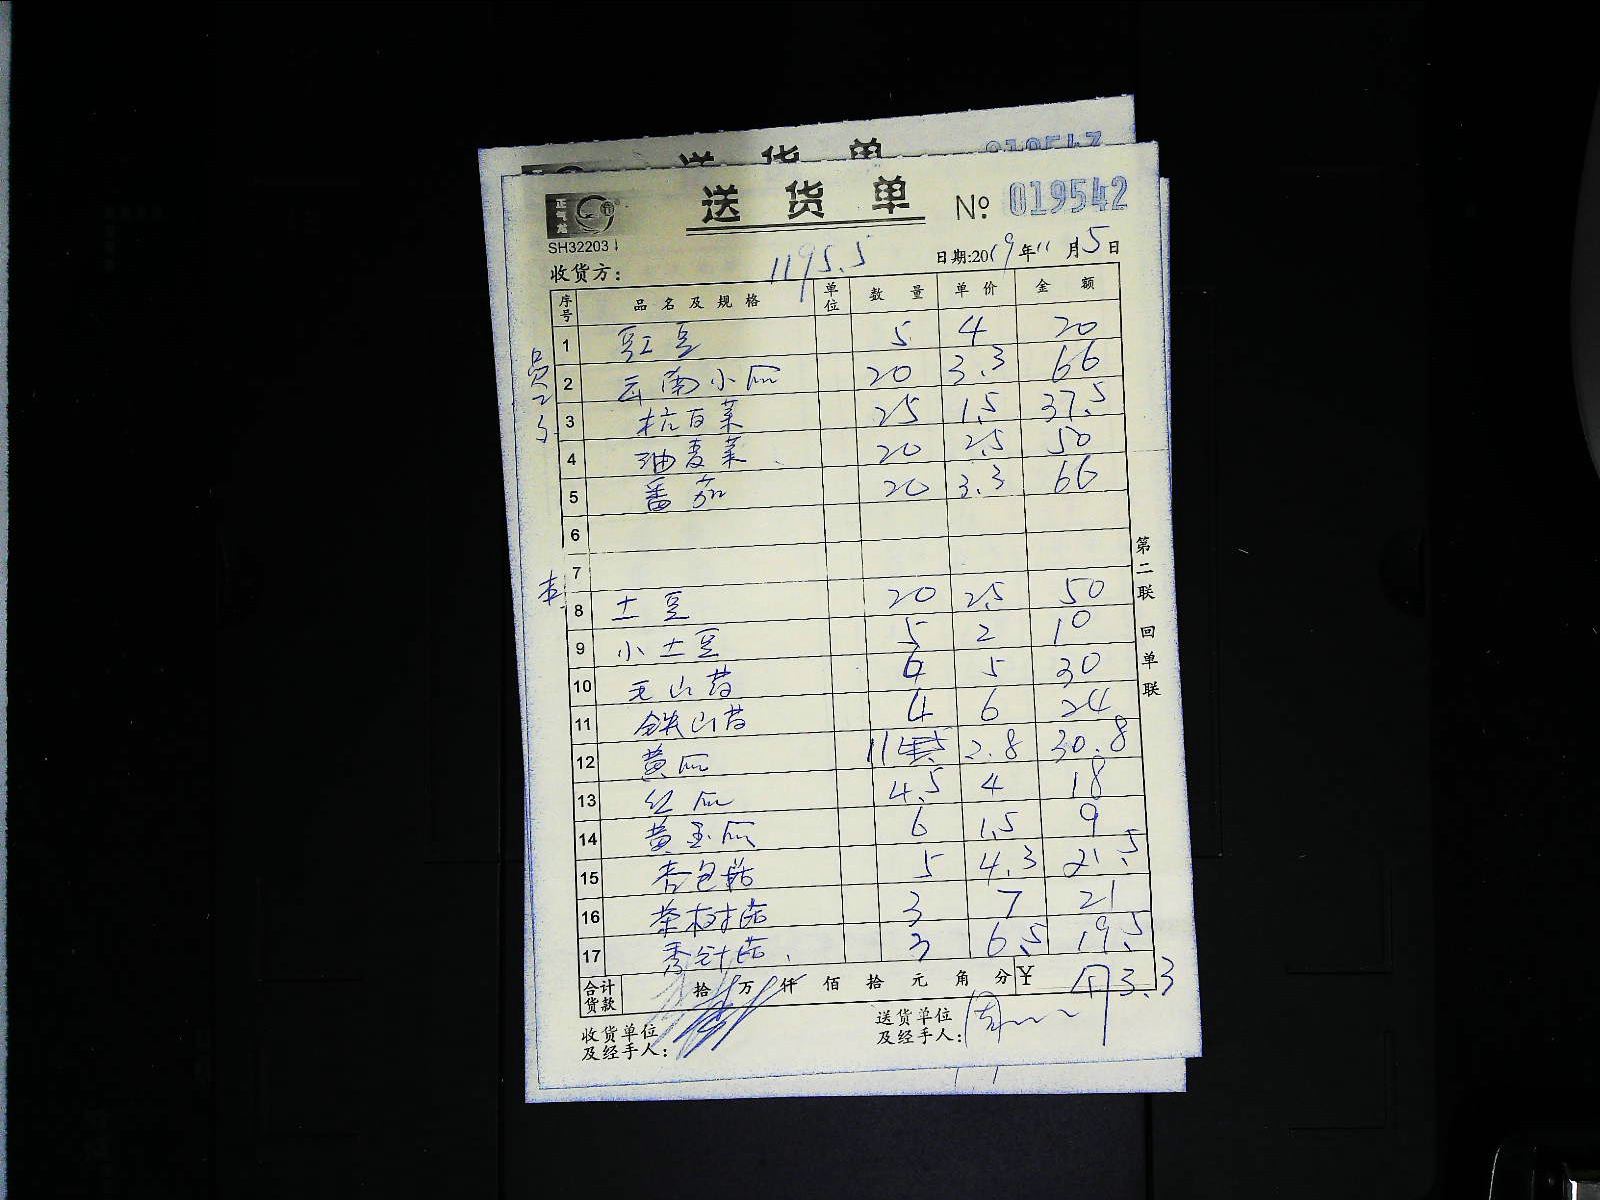 送 货 单
送 货 单 Nº 019542
正气龙
SH32203
1195.5
收货方： 日期:2019年11月5日
序号 品名及规格 单位 数量 单价 金额
1 豇豆 5 4 20
2 云南小瓜 20 3.3 66
3 杭白菜 25 1.5 37.5
4 油麦菜 20 2.5 50
5 番茄 20 3.3 66
6
7
8 土豆 20 2.5 50
9 小土豆 5 2 10
10 毛山药 6 5 30
11 铁山药 4 6 24
12 黄瓜 11 2.8 30.8
13 红瓜 4.5 4 18
14 黄玉瓜 6 1.5 9
15 杏包菇 5 4.3 21.5
16 茶树菇 3 7 21
17 秀针菇 3 6.5 19.5
合计货款 拾 万 仟 佰 拾 元 角 分 ￥ 473.3
收货单位及经手人： 送货单位及经手人：
第二联 回单联